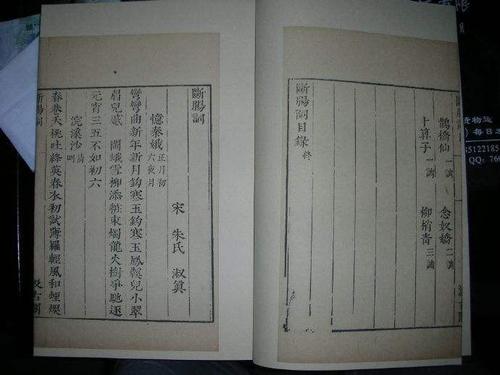 鵲橋仙 一調 念奴嬌 二調
卜算子 一調 柳梢青 三調
斷腸詞目錄 終
斷腸詞
宋 朱氏 淑真
憶秦娥 正月初六夜月
彎彎曲新年新月鈎寒玉鈎寒玉鳳鞋兒小翠
眉兒蹙 鬧蛾雪柳添粧束燭龍火樹爭馳逐
元宵三五不如初六
浣溪沙 清明
春巷夭桃吐絳英春衣初試薄羅輕風和煙煖
斷腸詞 汲古閣
貨物运
每日
85122185
QQ: 76